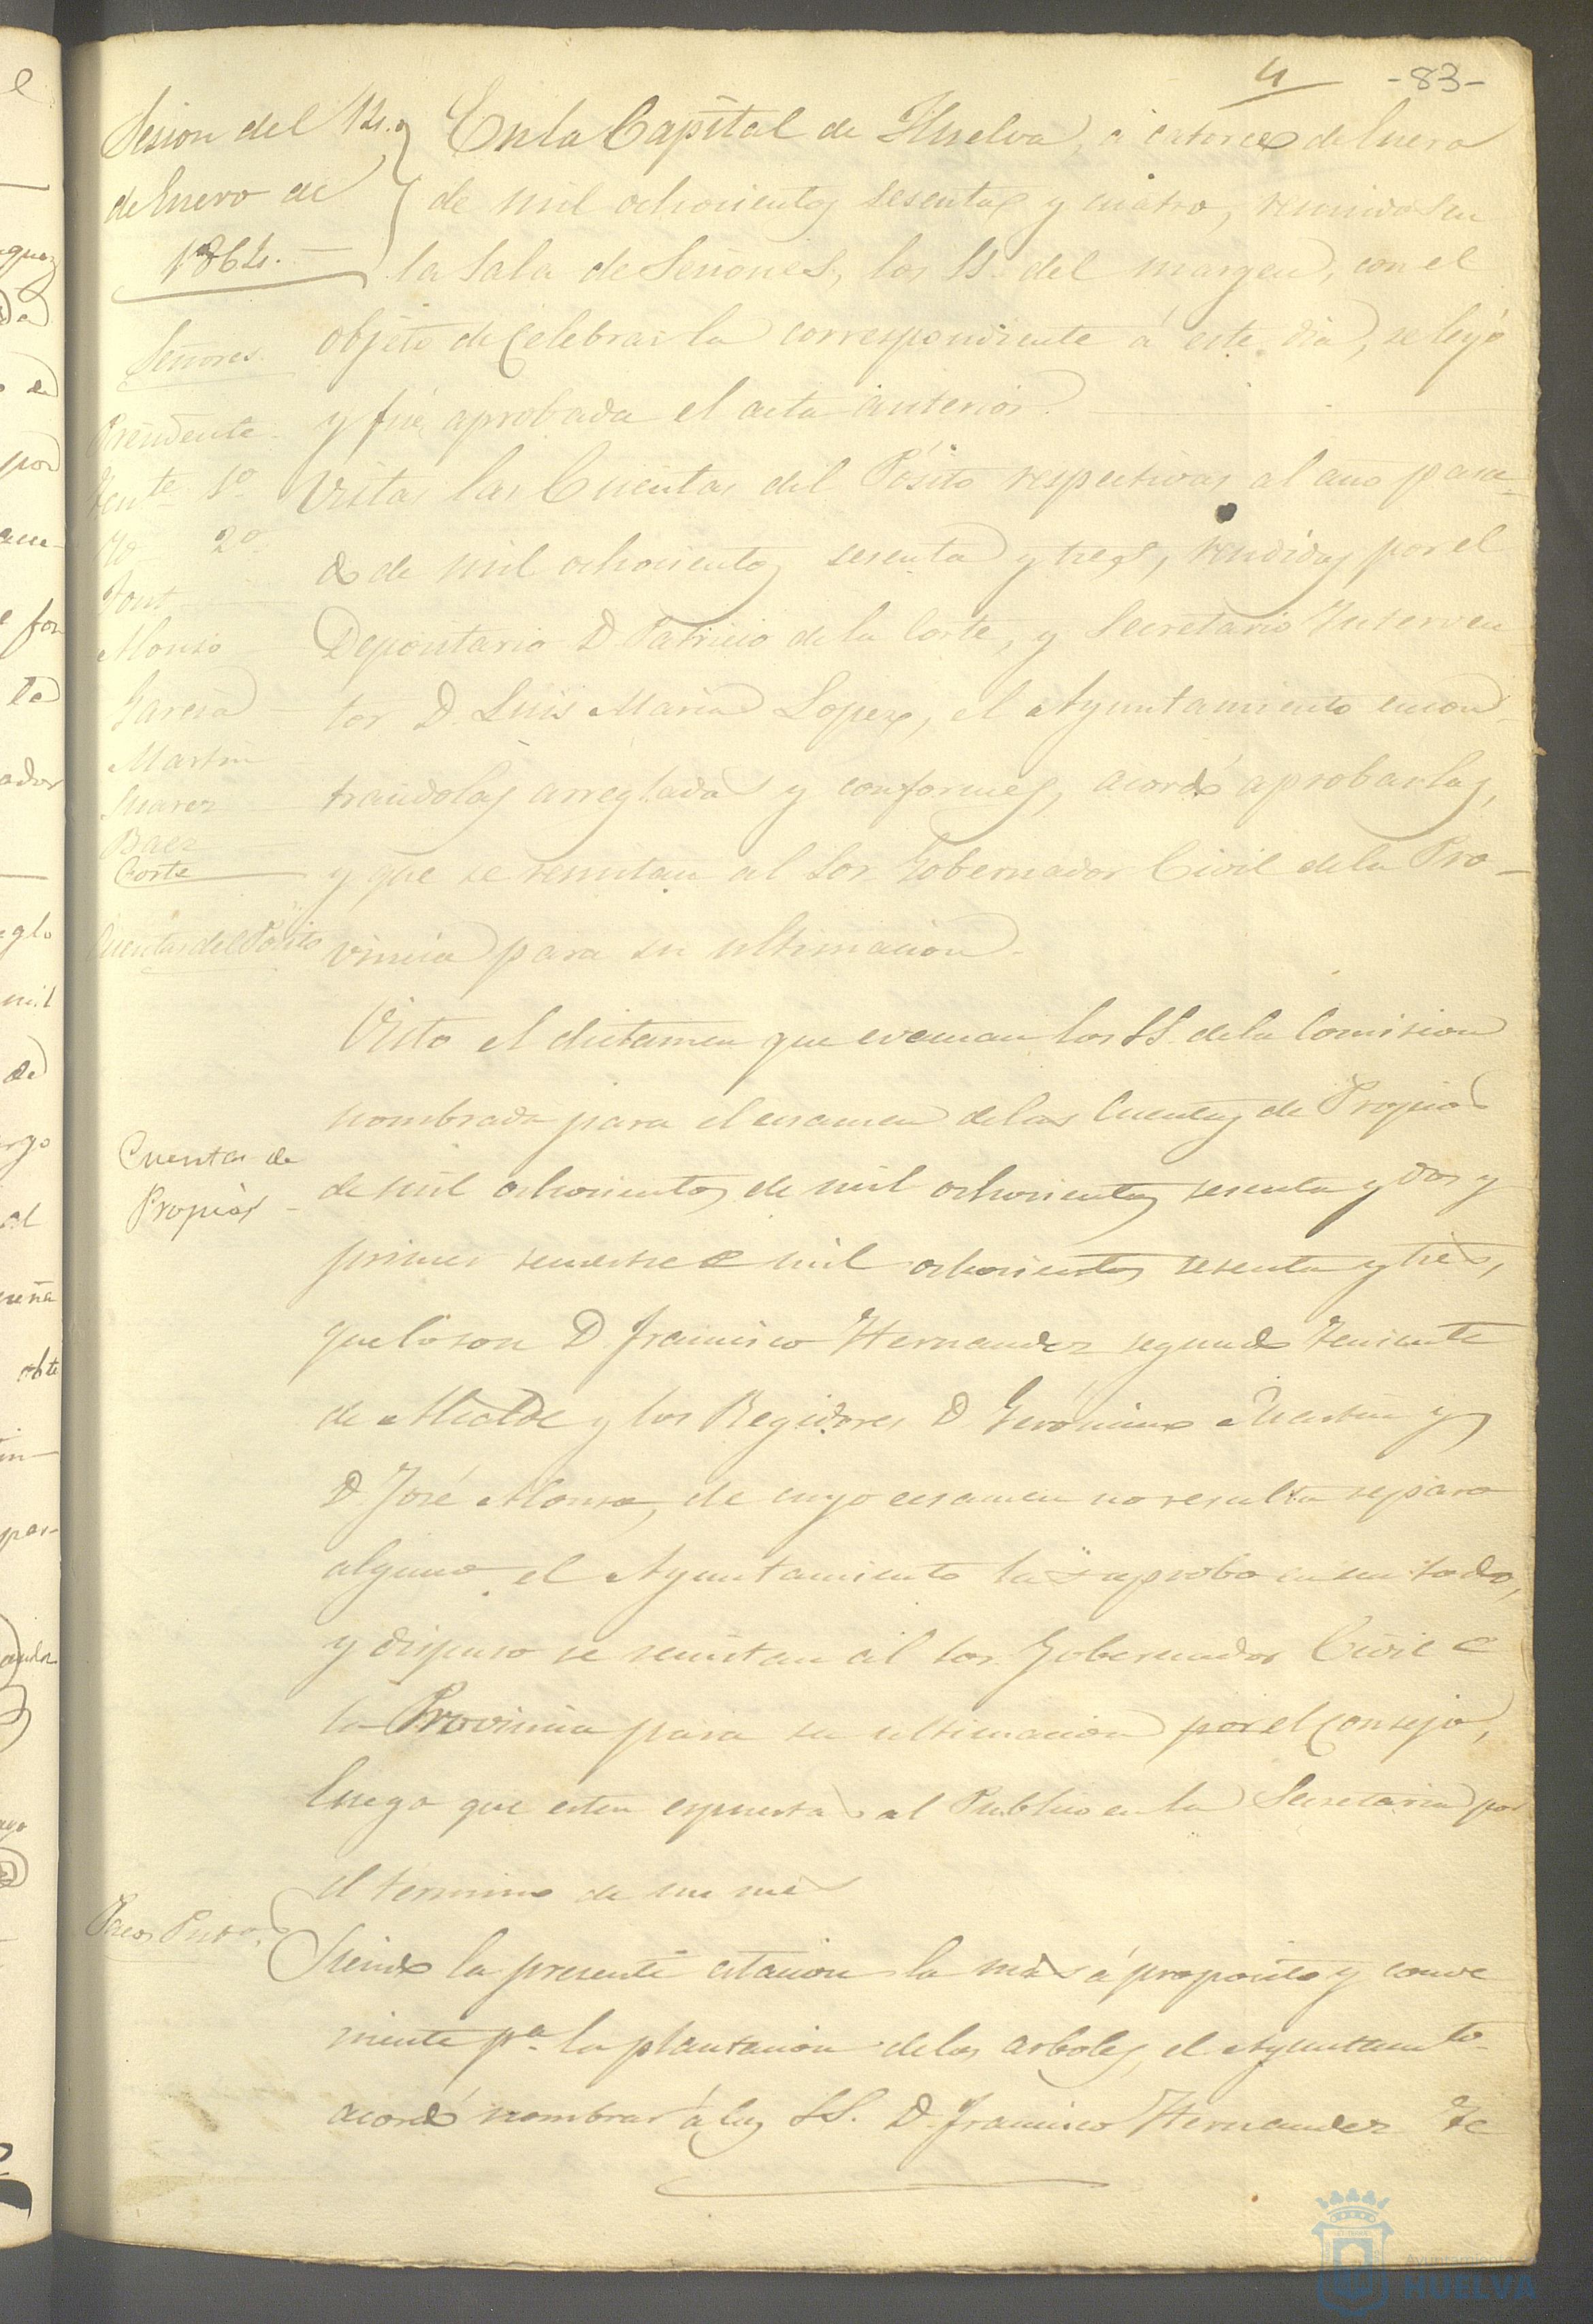 4 -83-
Sesion del 14.
de Enero de
1864.
Señores.
Presidente
Tente. 1º
Yd 2º
Font
Alonso
Garcia
Martin
Suarez
Baez
Corte
Cuentas del Pósito
Cuentas de
Propios
En la Capital de Huelva, á catorce de Enero
de mil ochocientos sesenta y cuatro, reunidos en
la Sala de Sesiones, los SS. del margen, con el
objeto de celebrar la correspondiente á este dia, se leyó
y fué aprobada el acta anterior.
Vistas las Cuentas del Pósito respectivas al año pasa-
do de mil ochocientos sesenta y tres, rendidas por el
Depositario D. Patricio de la Corte, y Secretario Interven
tor D. Luis Maria Lopez, el Ayuntamiento encon-
trandolas arregladas y conformes, acordó aprobarlas,
y que se remitan al Sor. Gobernador Civil de la Pro-
vincia para su ultimacion.
Visto el dictamen que evacuan los SS. de la Comision
nombrada para el ecsamen de las Cuentas de Propios
de mil ochocientos de mil ochocientos sesenta y dos y
primer semestre de mil ochocientos sesenta y tres,
que lo son D. Francisco Hernandez segundo Teniente
de Alcalde y los Regidores D. Gerónimo Martin y
D. José Alonso, de cuyo ecsamen no resulta reparo
alguno, el Ayuntamiento las aprobo en un todo,
y dispuso se remitan al Sor. Gobernador Civil de
la Provincia para su ultimacion por el Consejo,
luego que esten espuestas al Publico en la Secretaria por
el termino de un mes
Siendo la presente estacion la mas á proposito y conve
niente pª. la plantacion de los arboles, el Ayuntamto.
acordó nombrar á los SS. D. Francisco Hernandez Te
HUELVA